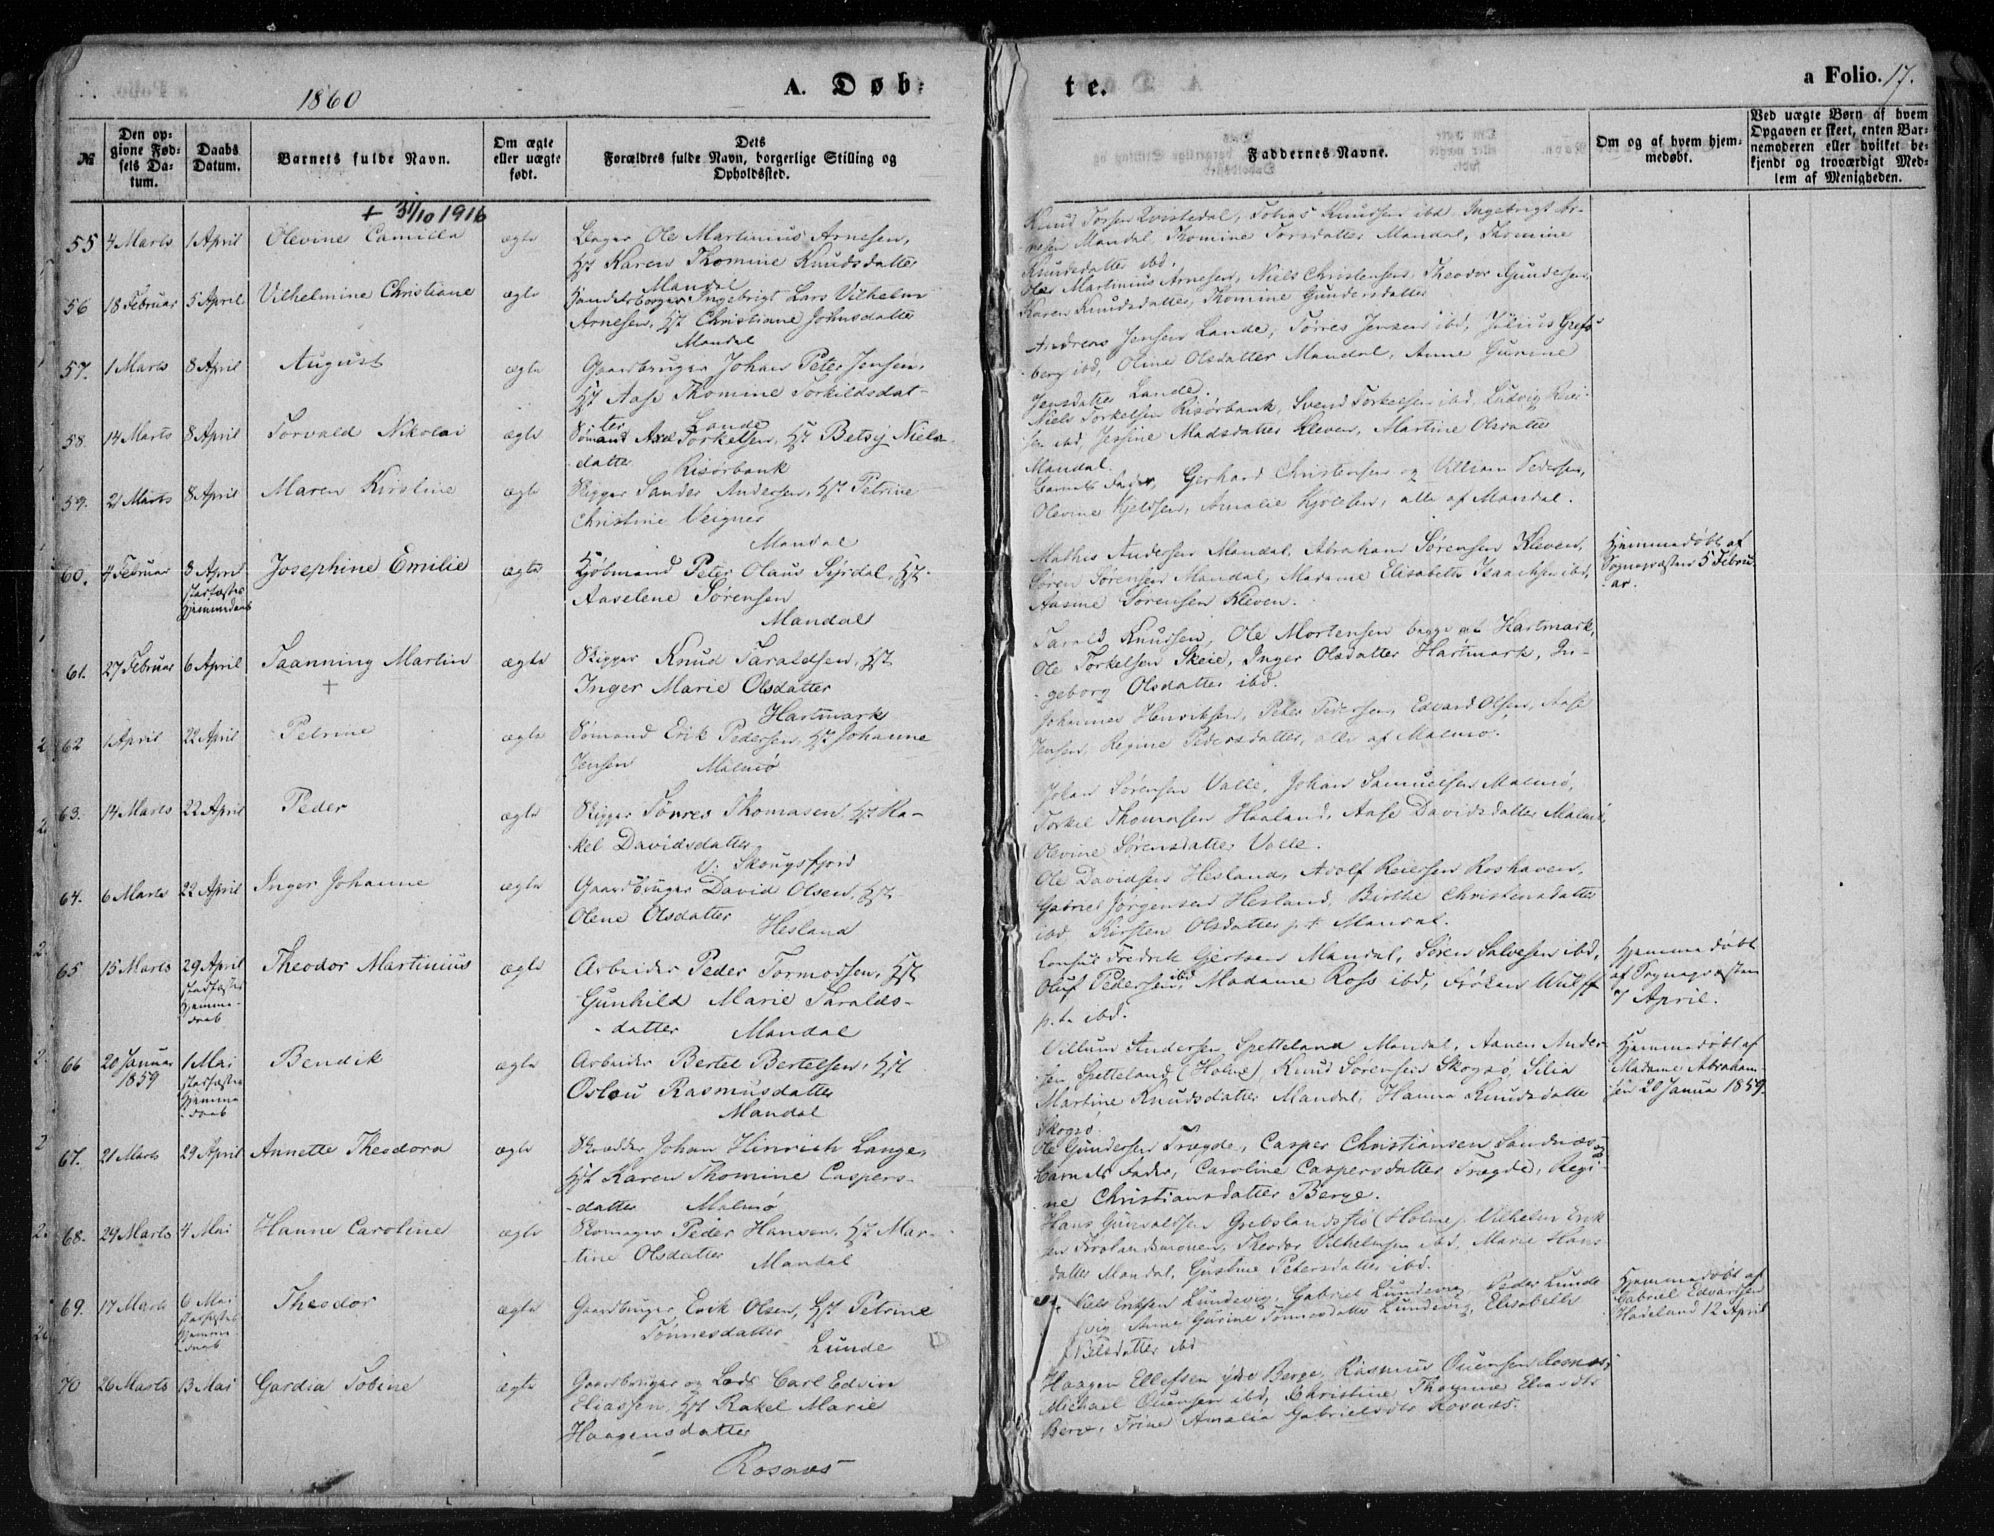 1860
A. Døb:
te.
a Folio. 17.
№
Den op-
givne Fød-
sels Da-
tum.
Daabs
Datum.
Barnets fulde Navn.
Om ægte
eller uægte
født.
Dets
Forældres fulde Navn, borgerlige Stilling og
Opholdssted.
Faddernes Navne.
Om og af hvem hjem-
medøbt.
Ved uægte Børn af hvem
Opgaven er skeet, enten Bar-
nemoderen eller hvilket be-
kjendt og troværdigt Med-
lem af Menigheden.
+ 31/10 1916
55 4 Marts 1 April Olevine Camilla ægte
Ole Martinius Arnesen,
Hst Karen Thomine Knudsdatter
Mandal
Knud Torsen, Tobias Knudsen ibd, Ingebrigt Ar-
nesen Mandal, Thomine Torsdatter Mandal, Thomine
Knudsdatter ibd.
56 18 Februar 5 April Vilhelmine Christiane ægte
Handelsborger Ingebrigt Lars Vilhelm
Arnesen, Hst Christiane Johnsdatter
Mandal
Ole Martinius Arnesen, Niels Christensen, Theodor Gundersen,
Karen Knudsdatter, Thomine Gundersdatter
57. 1 Marts 8 April August ægte
Gaardbruger Johan Peter Jensen,
Hst Aase Thomine Torkildsdat-
ter Lande
Andreas Jensen Lande, Tørres Jensen ibd, Julius Grefs-
berg ibd, Oline Olsdatter Mandal, Anne Gurine
Jensdatter Lande.
58. 14 Marts 8 April Torvald Nikolai ægte
Sømand Axel Torkelsen, Hst Betsy Niels-
datter Risørbank
Niels Torkelsen Risørbank, Svend Torkelsen ibd, Ludvig Rei-
sen ibd, Jessine Madsdatter Kleven, Martine Olsdatter
Mandal.
59. 21 Marts 8 April Maren Kirstine ægte
Skipper Sander Andersen, Hst Petrine
Christine Veigner
Mandal
Barnets Fader, Gerhard Christensen og Villiam Pedersen,
Olevine Kjeldsen, Amalie, alle af Mandal.
60. 4 Februar 8 April Josephine Emilie ægte
stadfæstet
Hjemmedaab
Kjøbmand Peter Olaus Syrdal, Hst
Aaselene Sørensen
Mandal
Mathis Andersen Mandal, Abraham Sørensen Kleven,
Søren Sørensen Mandal, Madame Elisabeth Isaachsen ibd,
Aasine Sørensen Kleven.
Hjemmedøbt af
Sognepræsten 5 Febru-
ar.
61. 27 Februar 6 April Taanning Martin ægte
+
Skipper Knud Taraldsen, Hst
Inger Marie Olsdatter
Hartmark
Tarald Knudsen, Ole Mortensen begge af Hartmark,
Ole Torkelsen Skeie, Inger Olsdatter Hartmark, In-
geborg Olsdatter ibd.
62 1 April 22 April Petrine ægte
Sømand Erik Pedersen, Hst Johanne
Jensen Malmø
Johannes Henriksen, Peter Pedersen, Edvard Olsen, Aase
Jensen, Regine Pedersdatter, alle af Malmø.
63. 14 Marts 22 April Peder ægte
Skipper Tønnes Thomasen, Hst Ra-
kel Davidsdatter
V. Skougsfjord
Johan Sørensen Valle, Johan Samuelsen Malmø,
Torkel Thomasen Haaland, Aase Davidsdatter Malmø,
Olevine Sørensdatter Valle.
64. 6 Marts 22 April Inger Johanne ægte
Gaardbruger David Olsen, Hst
Olene Olsdatter
Hesland
Ole Davidsen Hesland, Adolf Reiersen Roshaven,
Gabriel Jørgensen Hesland, Birthe Christensdatter
ibd, Kirsten Olsdatter p.t. Mandal.
65 15 Marts 29 April Theodor Martinius ægte
stadfæstet
Hjemme-
daab
Arbeider Peder Tormodsen, Hst
Gunhild Marie Taralds-
datter Mandal
Consul Fredrik Gjertsen Mandal, Søren Salvesen ibd,
Oluf Pedersen ibd, Madame Ross ibd, Frøken Wulff
p.t. ibd.
Hjemmedøbt
af Sognepræsten
7 April.
66 20 Januar 1 Mai Bendik ægte
1859
stadfæstet
Hjemme-
daab
Arbeider Bertel Bertelsen, Hst
Oslou Rasmusdatter
Mandal
Villum Andersen Spetteland Mandal, Aanen Ander-
sen Spetteland (Holme), Knud Sørensen Skogsø, Silia
Martine Knudsdatter Mandal, Hanna Knudsdatter
Skogsø.
Hjemmedøbt af
Madame Abraham-
sen 20 Januar 1859.
67. 21 Marts 29 April Annette Theodora ægte
Skrædder Johan Hinrich Lange,
Hst Karen Thomine Caspers-
datter Malmø
Ole Gundersen Trægde, Casper Christiansen Sandnæs og
Barnets Fader, Caroline Caspersdatter Trægde, Regi-
ne Christiansdatter Berge.
68. 29 Marts 4 Mai Hanne Caroline ægte
Skomager Peder Hansen, Hst Mar-
tine Olsdatter
Mandal
Hans Gunvaldsen (Holme), Vilhelm Erik-
sen, Theodor Vilhelmsen ibd, Marie Hans-
datter Mandal, Gustine Petersdatter ibd.
69. 17 Marts 6 Mai Theodor ægte
stadfæstet
Hjemme-
daab
Gaardbruger Erik Olsen, Hst Petrine
Tønnesdatter
Lunde
Niels Eriksen Lundevig, Gabriel Lundevig, Peder Lunde
vig, Anne Gurine Tønnesdatter Lundevig, Elisabeth
Nielsdatter ibd
Hjemmedøbt af
Gabriel Edvardsen
Haaeland 12 April
70 26 Marts 13 Mai Gardia Tobine ægte
Gaardbruger og Lods Carl Edvin
Eliassen, Hst Rakel Marie
Haagensdatter
Rosnæs
Haagen Ellefsen ydre Berge, Rasmus Ouensen Rosnæs,
Michael Ouensen ibd, Christine Thomine Eliasdtr
Berge, Trine Amalia Gabrielsdtr Rosnæs.